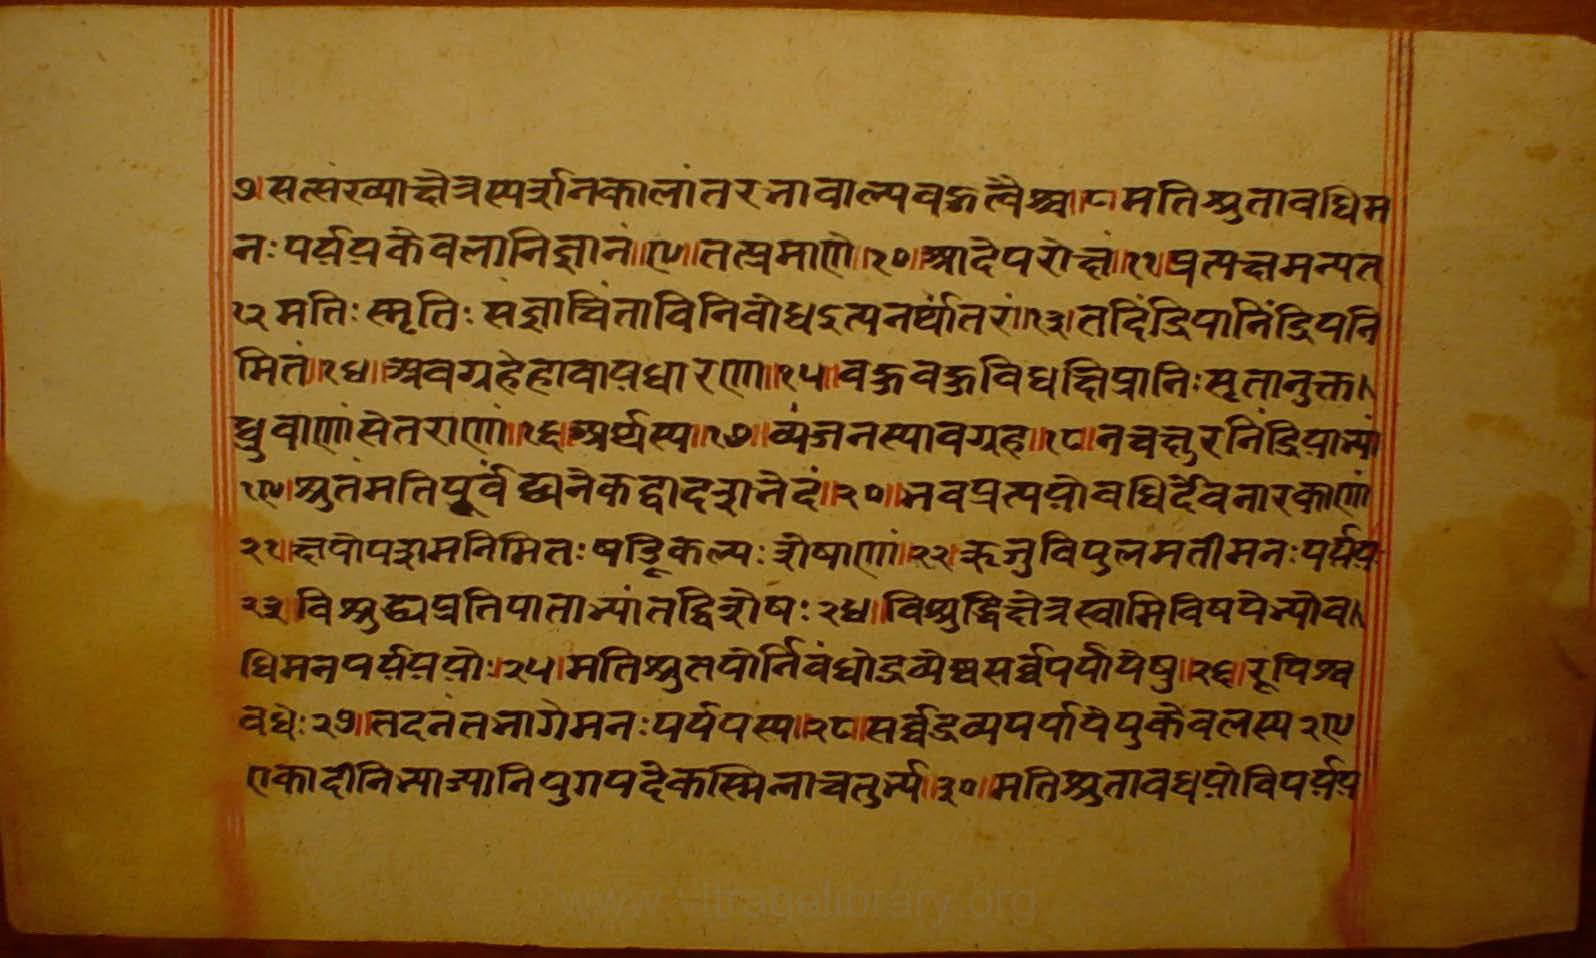 ७।सत्संख्याक्षेत्रस्पर्शनकालांतरभावाल्पबहुत्वैश्च।८मतिश्रुतावधिम
नःपर्ययकेवलानिज्ञानं॥९॥तत्प्रमाणे॥१०॥आद्येपरोक्षं॥११॥प्रत्यक्षमन्यत्
१२मतिःस्मृतिःसंज्ञाचिंताविनिबोधइत्यनर्थांतरं॥१३॥तदिंद्रियानिंद्रियनि
मितं॥१४॥अवग्रहेहावायधारणा॥१५॥बहुबहुविधक्षिप्रानिःसृतानुक्त।
ध्रुवाणांसेतराणां॥१६॥अर्थस्य॥१७॥व्यंजनस्यावग्रह॥१८॥नचक्षुरनिंद्रियाभ्यां
१९॥श्रुतंमतिपूर्वंद्व्यनेकद्वादशभेदं॥२०॥भवप्रत्ययोवधिर्देवनारकाणां
२१॥क्षयोपशमनिमितःषड्विकल्पःशेषाणां॥२२॥ऋजुविपुलमतीमनःपर्ययः
२३॥विशुद्ध्यप्रतिपाताभ्यांतद्विशेषः२४॥विशुद्धिक्षेत्रस्वामिविषयेभ्योव।
धिमनपर्यययोः॥२५॥मतिश्रुतयोर्निबंधोद्रव्येष्वसर्व्वपर्यायेषु॥२६॥रूपिश्व
वधेः२७॥तदनंतभागेमनःपर्ययस्य॥२८॥सर्व्वद्रव्यपर्यायेषुकेवलस्य२९
एकादीनिभाज्यानियुगपदेकस्मिन्नाचतुर्भ्य॥३०॥मतिश्रुतावधयोविपर्यय
www.vitragelibrary.org